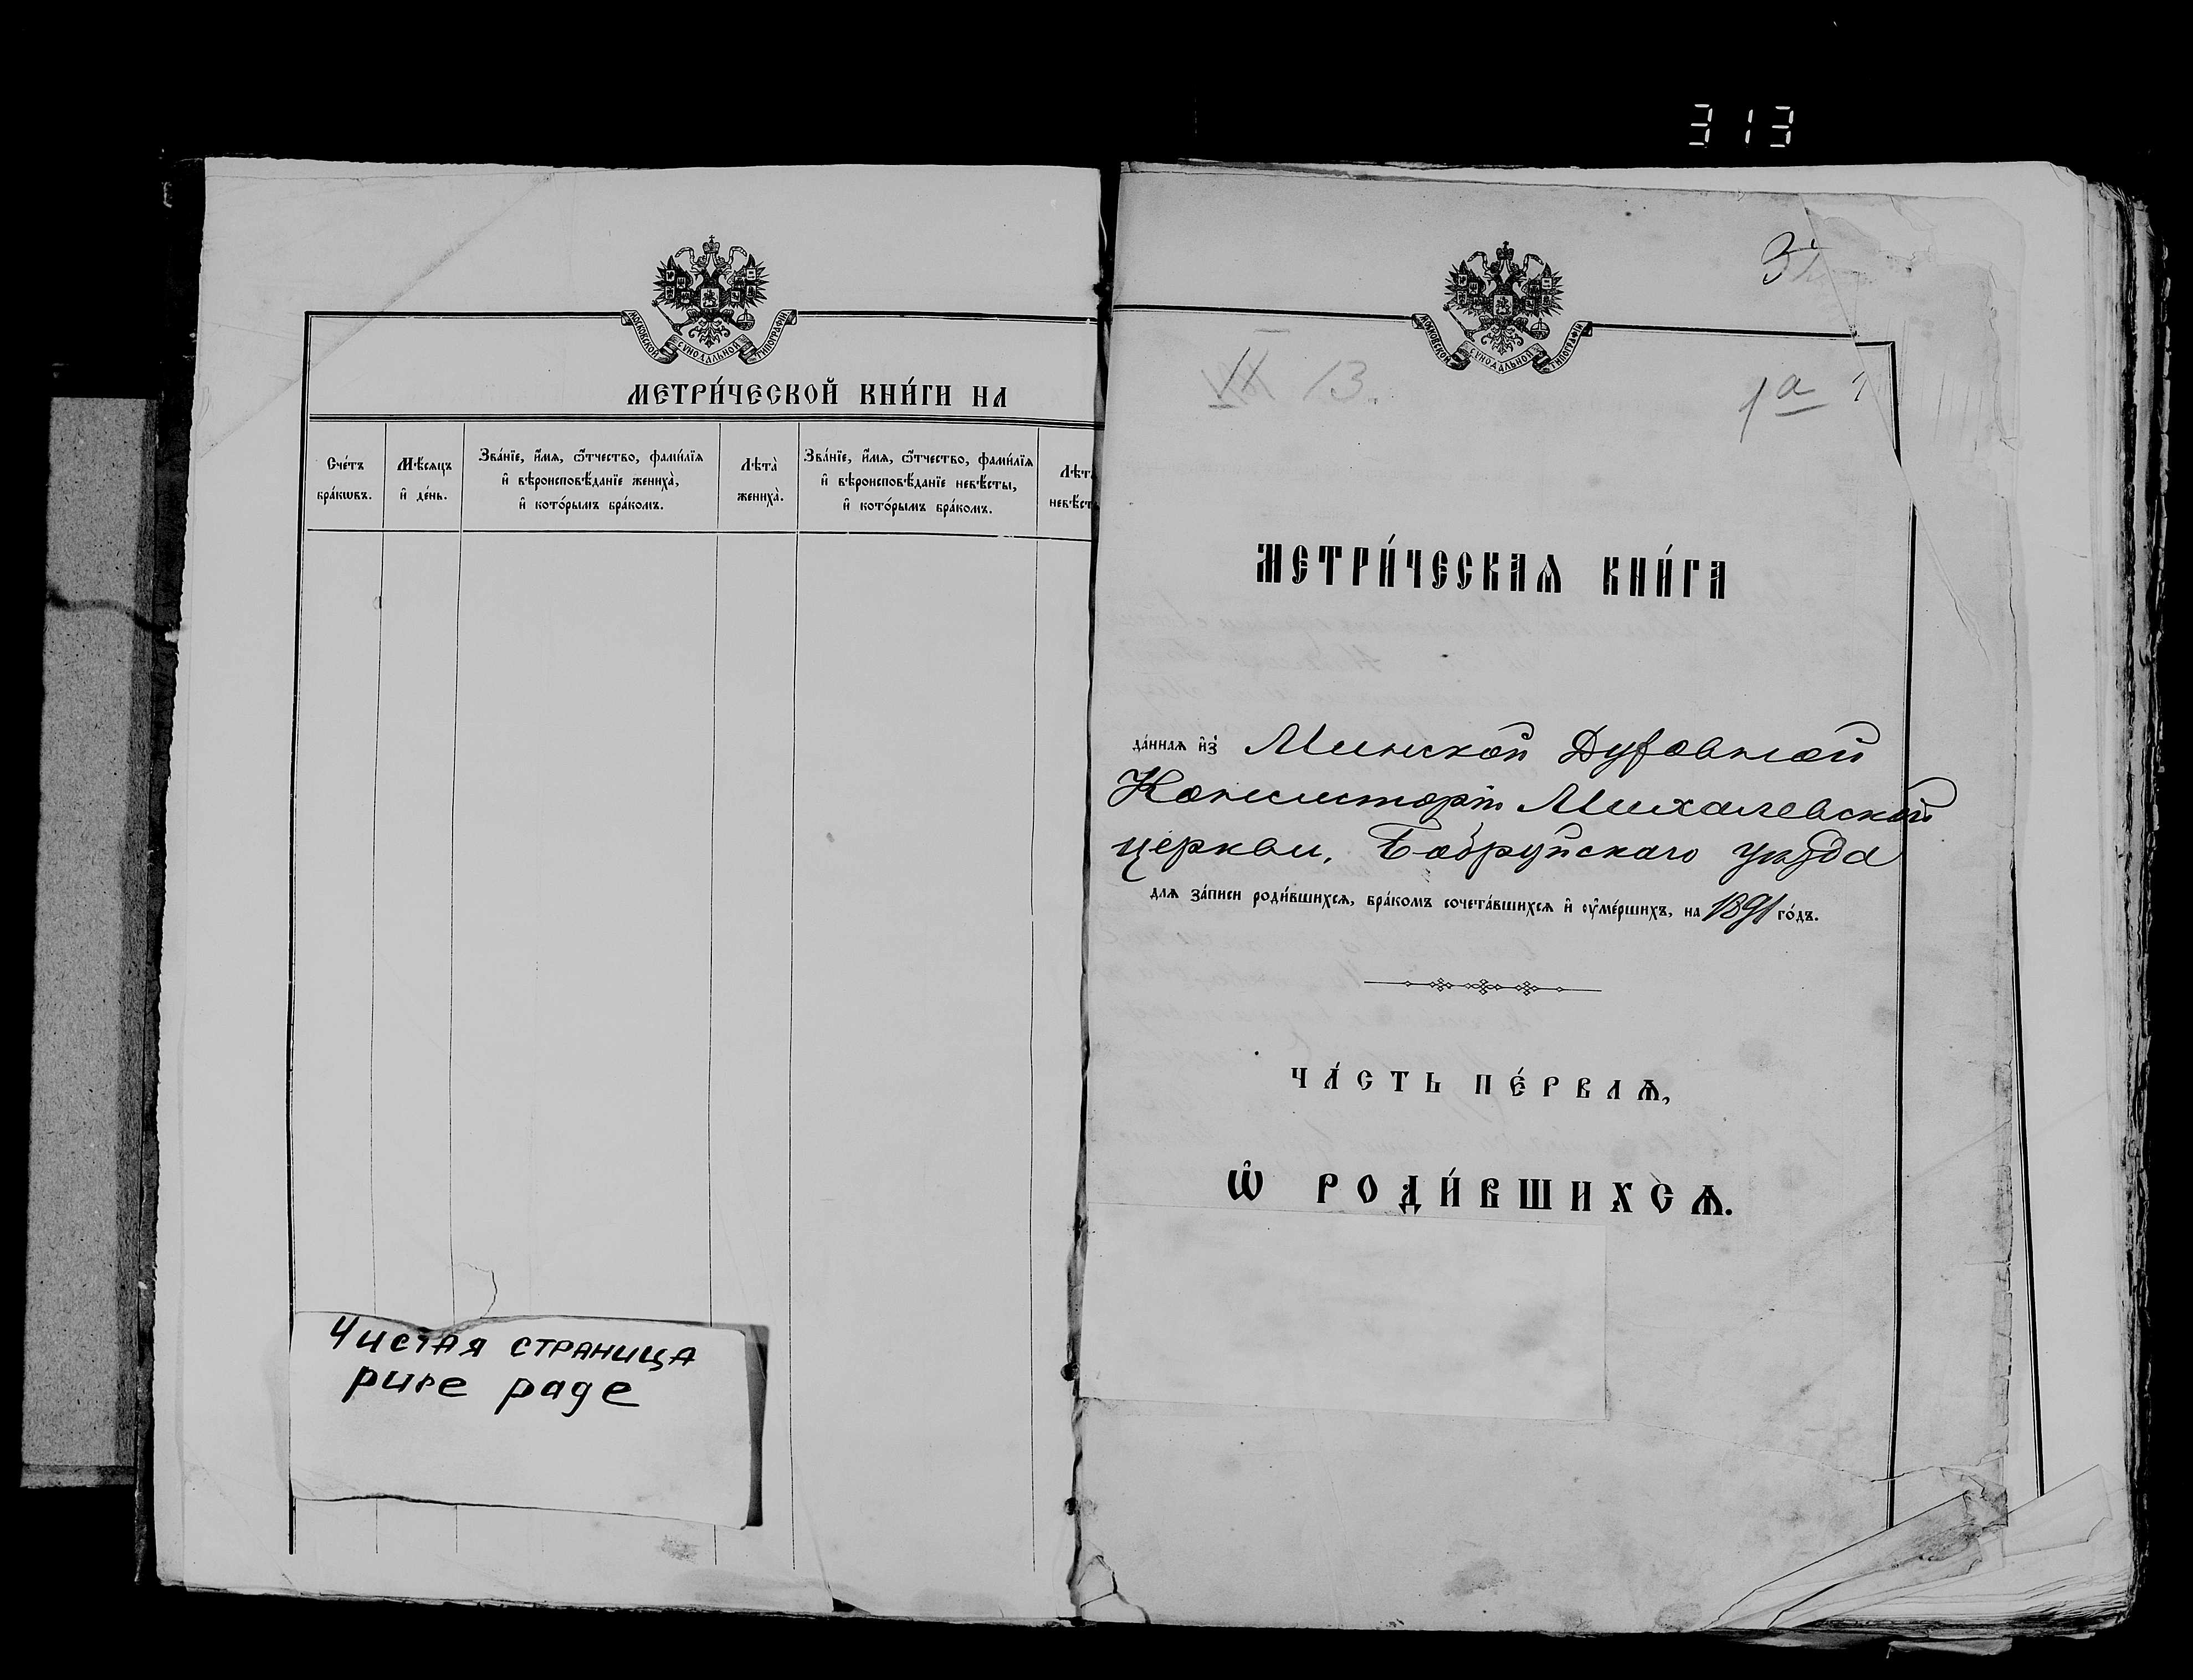 313
МОСКОВСКОЙ СУНОДАЛЬНОЙ ТИПОГРАФІИ
МЕТРИ́ЧЕСКОЙ КНИ́ГИ НА
Сче́тъ бра́кѡвъ.
Мѣ́сѧцъ и҆ де́нь.
Зва́нїе, и҆́мѧ, ѻ҆́тчество, фами́лїѧ
и҆ вѣроисповѣ́данїе жениха̀,
и҆ кото́рымъ бра́комъ.
Лѣта̀ жениха̀.
Зва́нїе, и҆́мѧ, ѻ҆́тчество, фами́лїѧ
и҆ вѣроисповѣ́данїе невѣ́сты,
и҆ кото́рымъ бра́комъ.
Лѣт
невѣст
Чистая страница
pure page
МОСКОВСКОЙ СУНОДАЛЬНОЙ ТИПОГРАФІИ
13.
1а
МЕТРИ́ЧЕСКАѦ КНИ́ГА
да́ннаѧ и҆з̾ Минской Духовной
Консисторіи Михалевской
церкви, Бобруйскаго уѣзда
длѧ за́писи роди́вшихсѧ, бра́комъ сочета́вшихсѧ и҆ ᲂу҆ме́ршихъ, на 1891 го́дъ.
ЧА́СТЬ ПЕ́РВАѦ,
Ѡ҆ РОДИ́ВШИХСѦ.